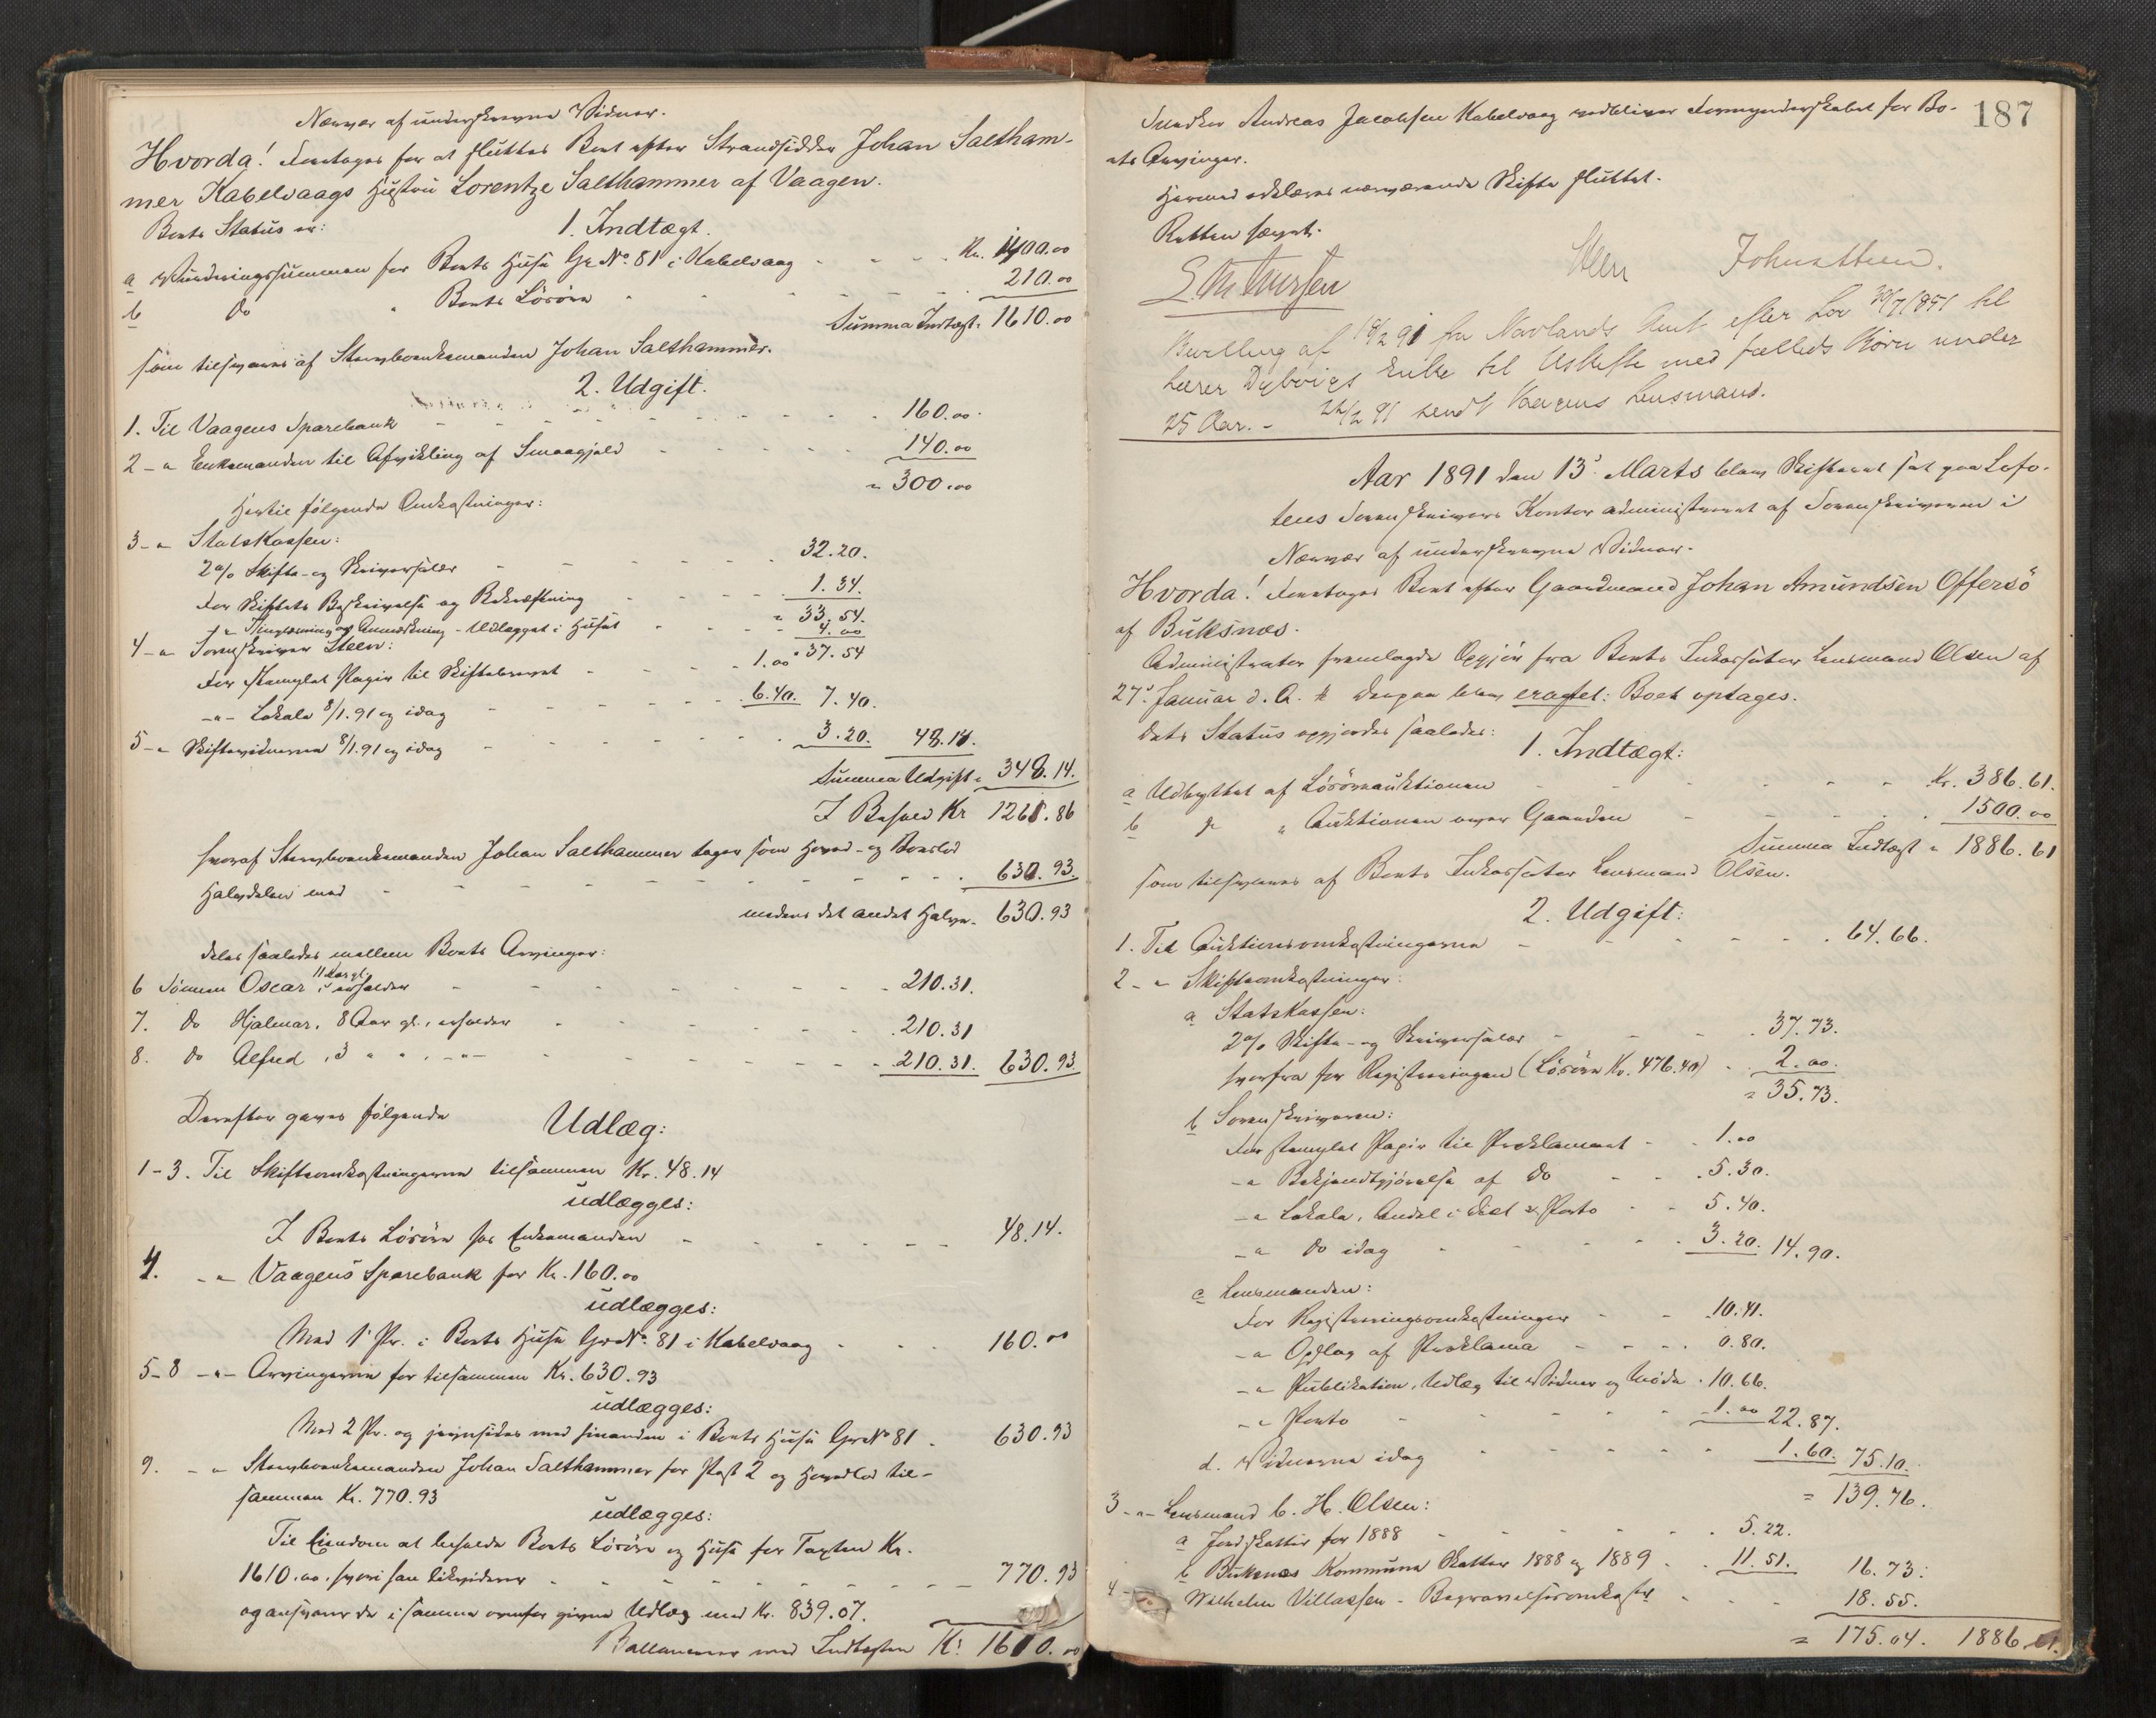 Nærvær af underskrevne Vidner.
Hvorda! Foretoges for at sluttes Boet efter Strandsidder Johan Saltham-
mer Kabelvaags Hustru Lorentze Salthammer af Vaagen.
Boets Status er:
1. Indtægt.
a Vurderingssummen for Boets Huse Gr. No. 81 i Kabelvaag - - - Kr. 1400.00
b Do " Boets Lösöre - - - 210.00
Summa Indtægt = 1610.00
som tilsvares af Stervboenkemanden Johan Salthammer.
2. Udgift.
1. Til Vaagens Sparebank - - - 160.00
2 - " Enkemanden til Afvikling af Smaagjæld - - - 140.00
= 300.00
Hertil følgende Omkostninger:
3 - " Statskassen:
2 % Skifte- og Skriversalær - - - 32.20.
For Skiftets Beskrivelse og Bekræftning - - - 1.34.
= 33.54.
" Tinglæsning og Anmærkning - Udlægget i Huset - - - 4.00
= 37.54
4 - " Sorenskriver Steen:
For stemplet Papir til Skiftebrevet - - - 1.00
- " - Lokale 8/1.91 og idag - - - 6.40. 7.40.
5 - " Skiftevidnerne 8/1.91 og idag - - - 3.20. 48.14.
Summa Udgift = 348.14.
I Behold Kr 1261.86
hvoraf Stervboenkemanden Johan Salthammer tager som Hoved- og Boeslod
Halvdelen med - - - 630.93.
medens det andet Halve - 630.93
deles saaledes mellem Boets Arvinger:
6 Sønnen Oscar, 11 Aar gl. erholder - - - 210.31.
7. Do Hjalmar, 8 Aar gl., erholder - - - 210.31
8. Do Alfred, 3 " " , - " - - - - 210.31. 630.93
Derefter gaves følgende
Udlæg:
1-3. Til Skifteomkostningerne tilsammen Kr. 48.14
udlægges:
I Boets Lösöre hos Enkemanden - - - 48.14.
4. - " Vaagens Sparebank for Kr. 160.00
udlægges:
Med 1' Pr. i Boets Huse Gr No. 81 i Kabelvaag - - - 160.00
5-8 - " - Arvingerne for tilsammen Kr. 630.93
udlægges:
Med 2 Pr. og jevnsides med hinanden i Boets Huse Gr No 81 - 630.93
9. - " Stervboenkemanden Johan Salthammer for Post 2 og Hovedlod til-
sammen Kr. 770.93
udlægges:
Til Eiendom at beholde Boets Lösöre og Huse for Taxten Kr.
1610.00, hvori han likviderer - - - 770.93
og ansvarer de i samme ovenfor givne Udlæg med Kr. 839.07.
Ballancerer med Indtægten Kr. 1610.00
187
Snedker Andreas Jacobsen Kabelvaag vedbliver Formynderskabet for Bo-
ets Arvinger.
Hermed erklæres nærværende Skifte sluttet.
Retten hævet.
Steen Johnathsen.
Bevilling af 18/2 91 fra Norlands Amt efter Lov 30/7 1851 til
Lærer Dybvigs Enke til Uskifte med fælleds Børn under
25 Aar. - 24/2 91 sendt Vaagens Lensmand.
Aar 1891 den 13' Marts blev Skifteret sat paa Lofo-
tens Sorenskrivers Kontor administreret af Sorenskriveren i
Nærvær af underskrevne Vidner.
Hvorda! Foretoges Boet efter Gaardmand Johan Amundsen Offersö
af Buksnæs.
Administrator fremlagde Opgjör fra Boets Inkassator Lensmand Olsen af
27' Januar d. A. Derpaa blev eragtet: Boet optages.
Dets Status opgjordes saaledes:
1. Indtægt:
a Udbyttet af Lösöreauktionen - - - Kr. 386.61.
b Do " Auktionen over Gaarden - - - 1500.00
Summa Indtægt = 1886.61
som tilsvares af Boets Inkassator Lensmand Olsen.
2. Udgift:
1. Til Auktionsomkostningerne - - - 64.66.
2 - " Skifteomkostninger:
a Statskassen:
2 % Skifte- og Skriversalær - - - 37.73.
herfra for Registreringen (Lösöre Kr. 476.40) - 2.00.
= 35.73.
b Sorenskriveren:
For stemplet Papir til Proklamaet - - 1.00
- " Bekjendtgjørelse af Do - - 5.30.
- " Lokale, Andel i Diæt & Porto - - 5.40.
- " Do idag - - - 3.20. 14.90.
c Lensmanden:
For Registreringsomkostninger - - 10.41.
- " Opslag af Proklama - - - 0.80.
- " Publikation, Udlæg til Vidner og Møde - 10.66.
- " Porto - - - 1.00 22.87.
d. Vidnerne idag - - - 1.60. 75.10.
= 139.76.
3 - " - Lensmand C. H. Olsen:
a Jordskatter for 1888 - - - 5.22.
b Buksnæs Kommune Skatter 1888 og 1889 - 11.51. 16.73.
4 - Wilhelm Villassen - Begravelsesomkostn. - - - 18.55.
= 175.04. 1886.61.